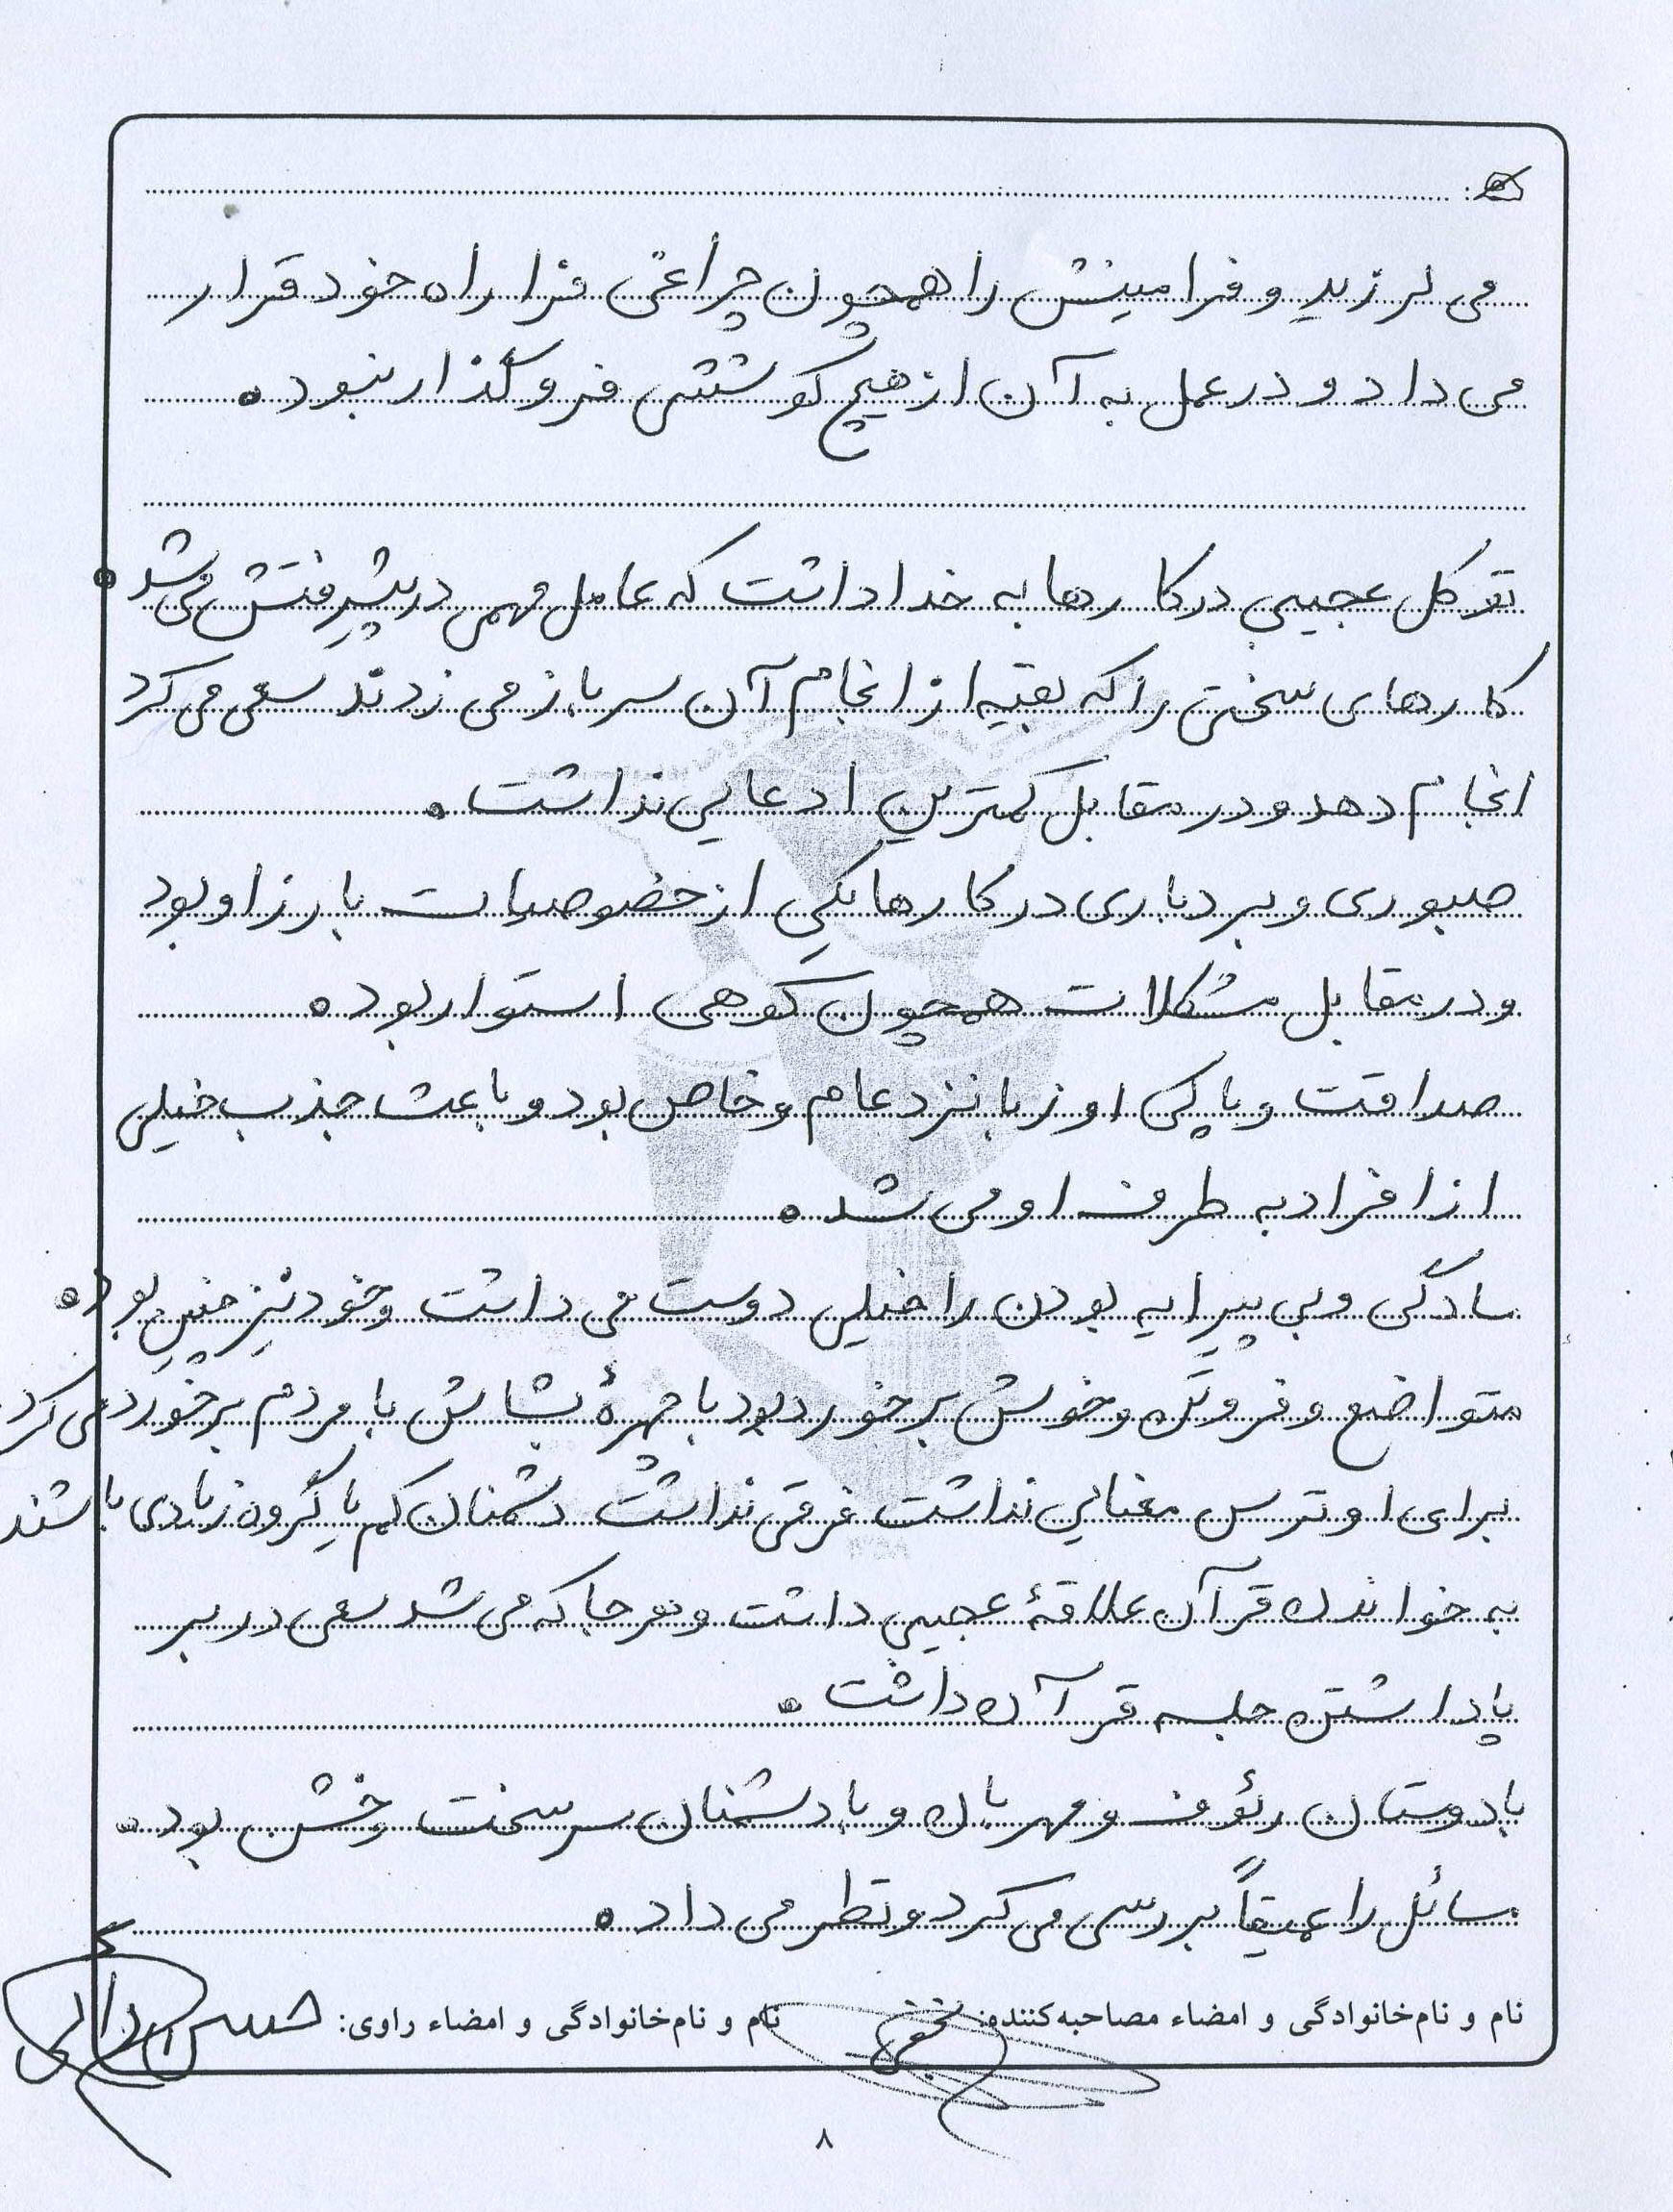 می لرزید و فرامینش را همچون چراغی فرا راه خود قرار
می داد و در عمل به آن از هیچ کوششی فروگذار نبود.
توکل عجیبی در کارها به خدا داشت که عامل مهمی در پیشرفتش می شد.
کارهای سختی را که بقیه از انجام آن سر باز می زدند سعی می کرد
انجام دهد و در مقابل کمترین ادعایی نداشت.
صبوری و بردباری در کارها یکی از خصوصیات بارز او بود
و در مقابل مشکلات همچون کوهی استوار بود.
صداقت و پاکی او زبانزد عام و خاص بود و باعث جذب خیلی
از افراد به طرف او می شد.
سادگی و بی پیرایه بودن را خیلی دوست می داشت و خود نیز چنین بود.
متواضع و فروتن و خوش برخورد بود با چهرهٔ بشاش با مردم برخورد می کرد.
برای او ترس معنایی نداشت فرقی نداشت دشمنان کم یا گروه زیادی باشند
به خواندن قرآن علاقهٔ عجیبی داشت و هر جا که می شد سعی در بر
پا داشتن جلسه قرآن داشت.
با دوستان رئوف و مهربان و با دشمنان سرسخت و خشن بود.
مسائل را عمیقاً بررسی می کرد و نظر می داد.
نام و نام‌خانوادگی و امضاء مصاحبه‌کننده:
نام و نام‌خانوادگی و امضاء راوی: حسن
۸